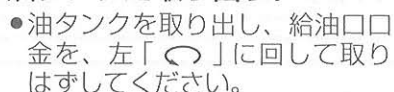 ●油タンクを取り出し、給油口口
金を、左「↶」に回して取り
はずしてください。